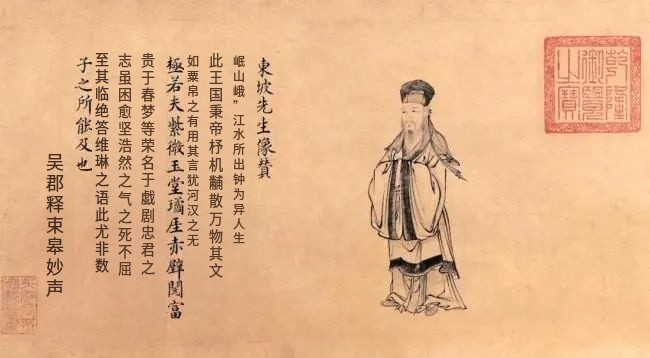 乾隆
御覽
之寶
東坡先生像贊
岷山峨”江水所出钟为异人生
此王国秉帝杼机黼散万物其文
如粟帛之有用其言犹河汉之无
極若夫紫微玉堂璚厓赤壁閱富
贵于春梦等荣名于戲剧忠君之
志虽困愈坚浩然之气之死不屈
至其临绝答维琳之语此尤非数
子之所能及也
吴郡释束皋妙声